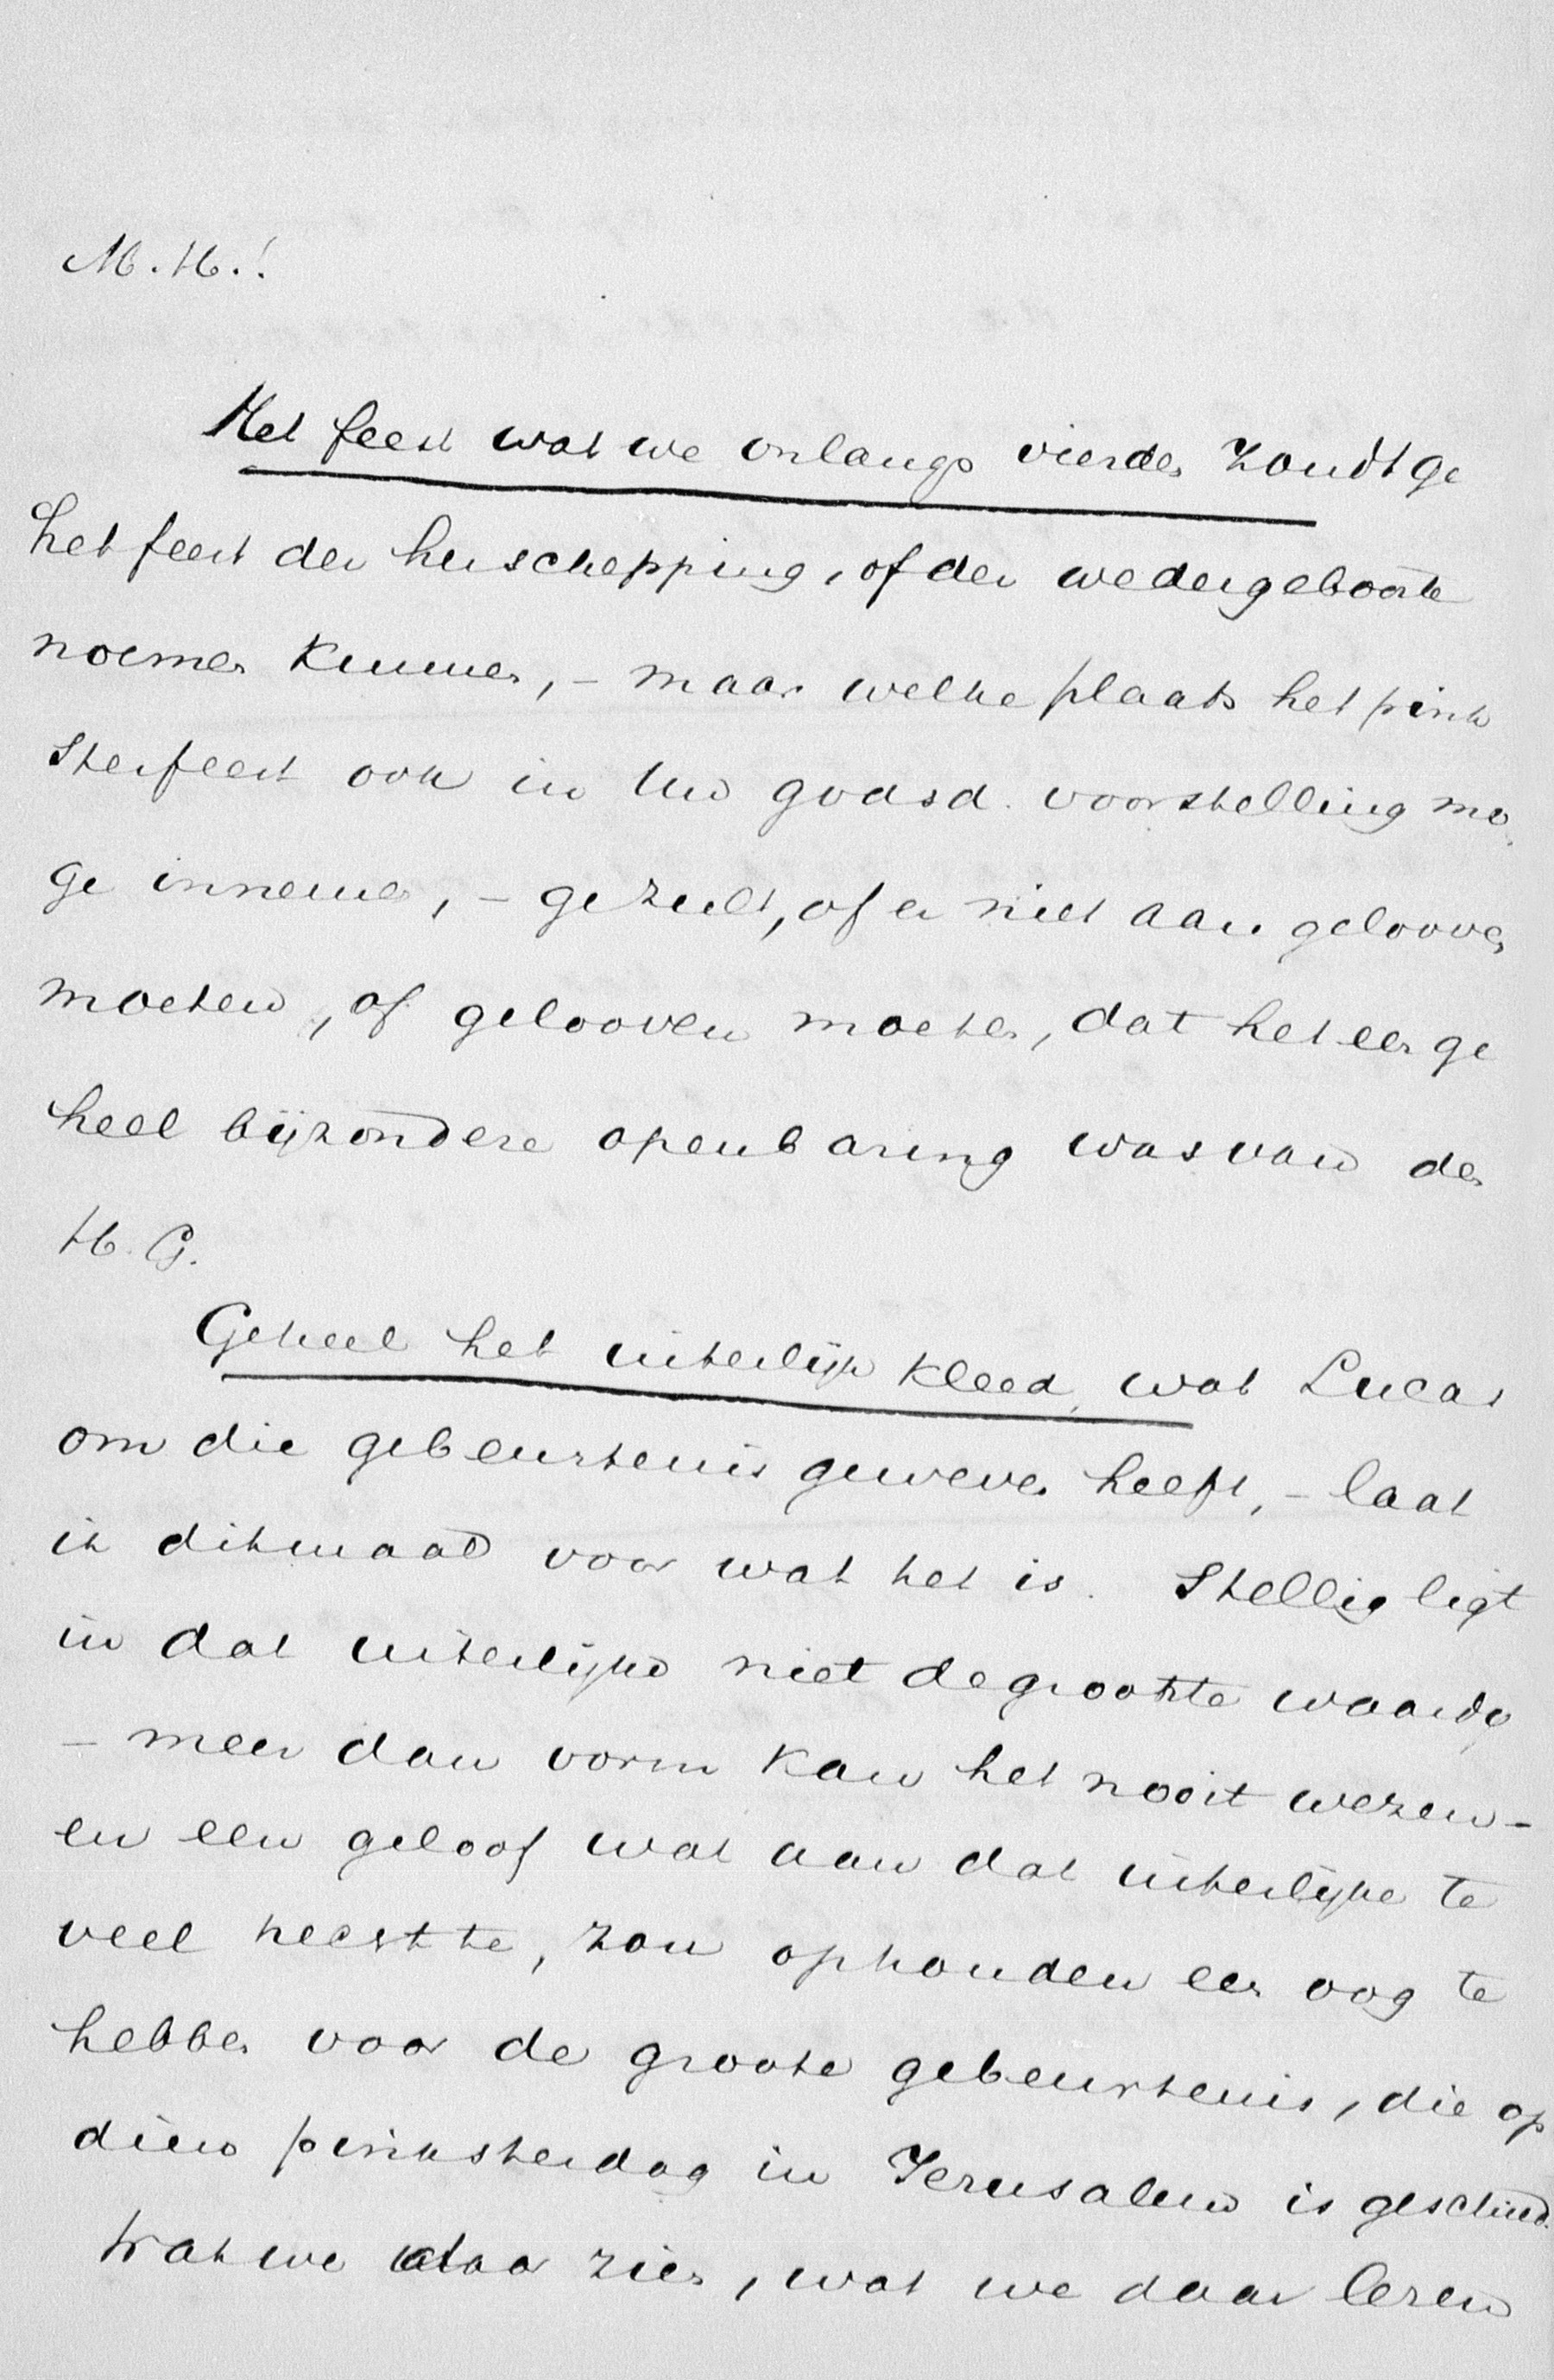 M. H.!
Het feest wat we onlangs vierden zoudt ge
het feest der herschepping, of der wedergeboorte
noemen kunnen, – maar welke plaats het pink
sterfeest ook in Uw godsd. voorstelling mo
ge innemen, – ge zult, of er niet aan gelooven
moeten, of gelooven moeten, dat het een ge
heel bijzondere openbaring was van den
H. G.
Geheel het uiterlijk kleed, wat Lucas
om die gebeurtenis geweven heeft, – laat
ik ditmaal voor wat het is. Stellig ligt
in dat uiterlijke niet de grootste waarde
– meer dan vorm kan het nooit wezen –
en een geloof wat aan dat uiterlijke te
veel hechtte, zou ophouden een oog te
hebben voor de groote gebeurtenis, die op
dien pinksterdag in Jerusalem is geschied.
Wat we daar zien, wat we daar lezen